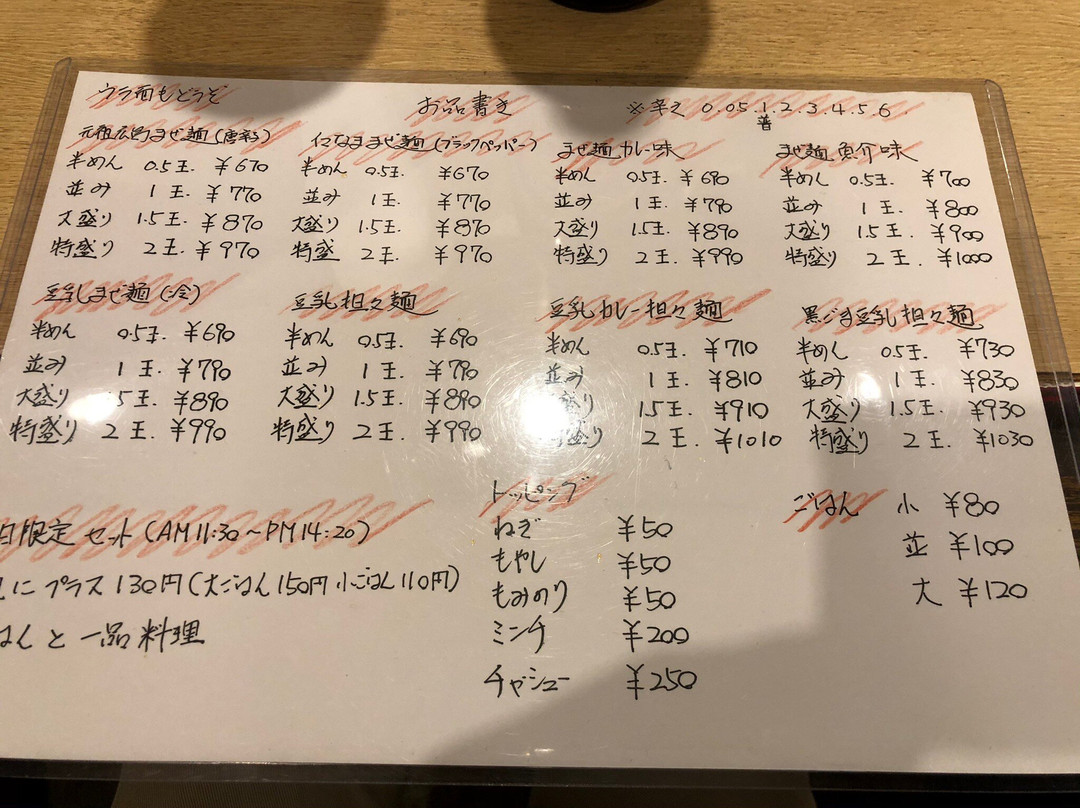 ウラ面もどうぞ
お品書き
※辛さ 0.05.1.2.3.4.5.6
普
元祖広島まぜ麺(唐辛子)
半めん 0.5玉 ¥670
並み 1玉 ¥770
大盛り 1.5玉 ¥870
特盛り 2玉 ¥970
まぜ麺(ブラックペッパー)
半めん 0.5玉 ¥670
並み 1玉. ¥770
大盛り 1.5玉. ¥870
特盛 2玉. ¥970
まぜ麺カレー味
半めん 0.5玉. ¥690
並み 1玉. ¥790
大盛り 1.5玉. ¥890
特盛り 2玉. ¥990
まぜ麺魚介味
半めん 0.5玉. ¥700
並み 1玉. ¥800
大盛り 1.5玉. ¥900
特盛り 2玉. ¥1000
豆乳まぜ麺(冷)
半めん 0.5玉. ¥690
並み 1玉. ¥790
大盛り .5玉. ¥890
特盛り 2玉. ¥990
豆乳担々麺
半めん 0.5玉. ¥690
並み 1玉. ¥790
大盛り 1.5玉. ¥890
特盛り 2玉. ¥990
豆乳カレー担々麺
半めん 0.5玉. ¥710
並み 1玉. ¥810
盛り 1.5玉. ¥910
特盛り 2玉. ¥1010
黒ごま豆乳担々麺
半めん 0.5玉. ¥730
並み 1玉. ¥830
大盛り 1.5玉. ¥930
特盛り 2玉. ¥1030
日限定セット(AM11:30~PM14:20)
にプラス130円(大ごはん150円小ごはん110円)
はんと一品料理
トッピング
ねぎ ¥50
もやし ¥50
もみのり ¥50
ミンチ ¥200
チャーシュー ¥250
ごはん 小 ¥80
並 ¥100
大 ¥120